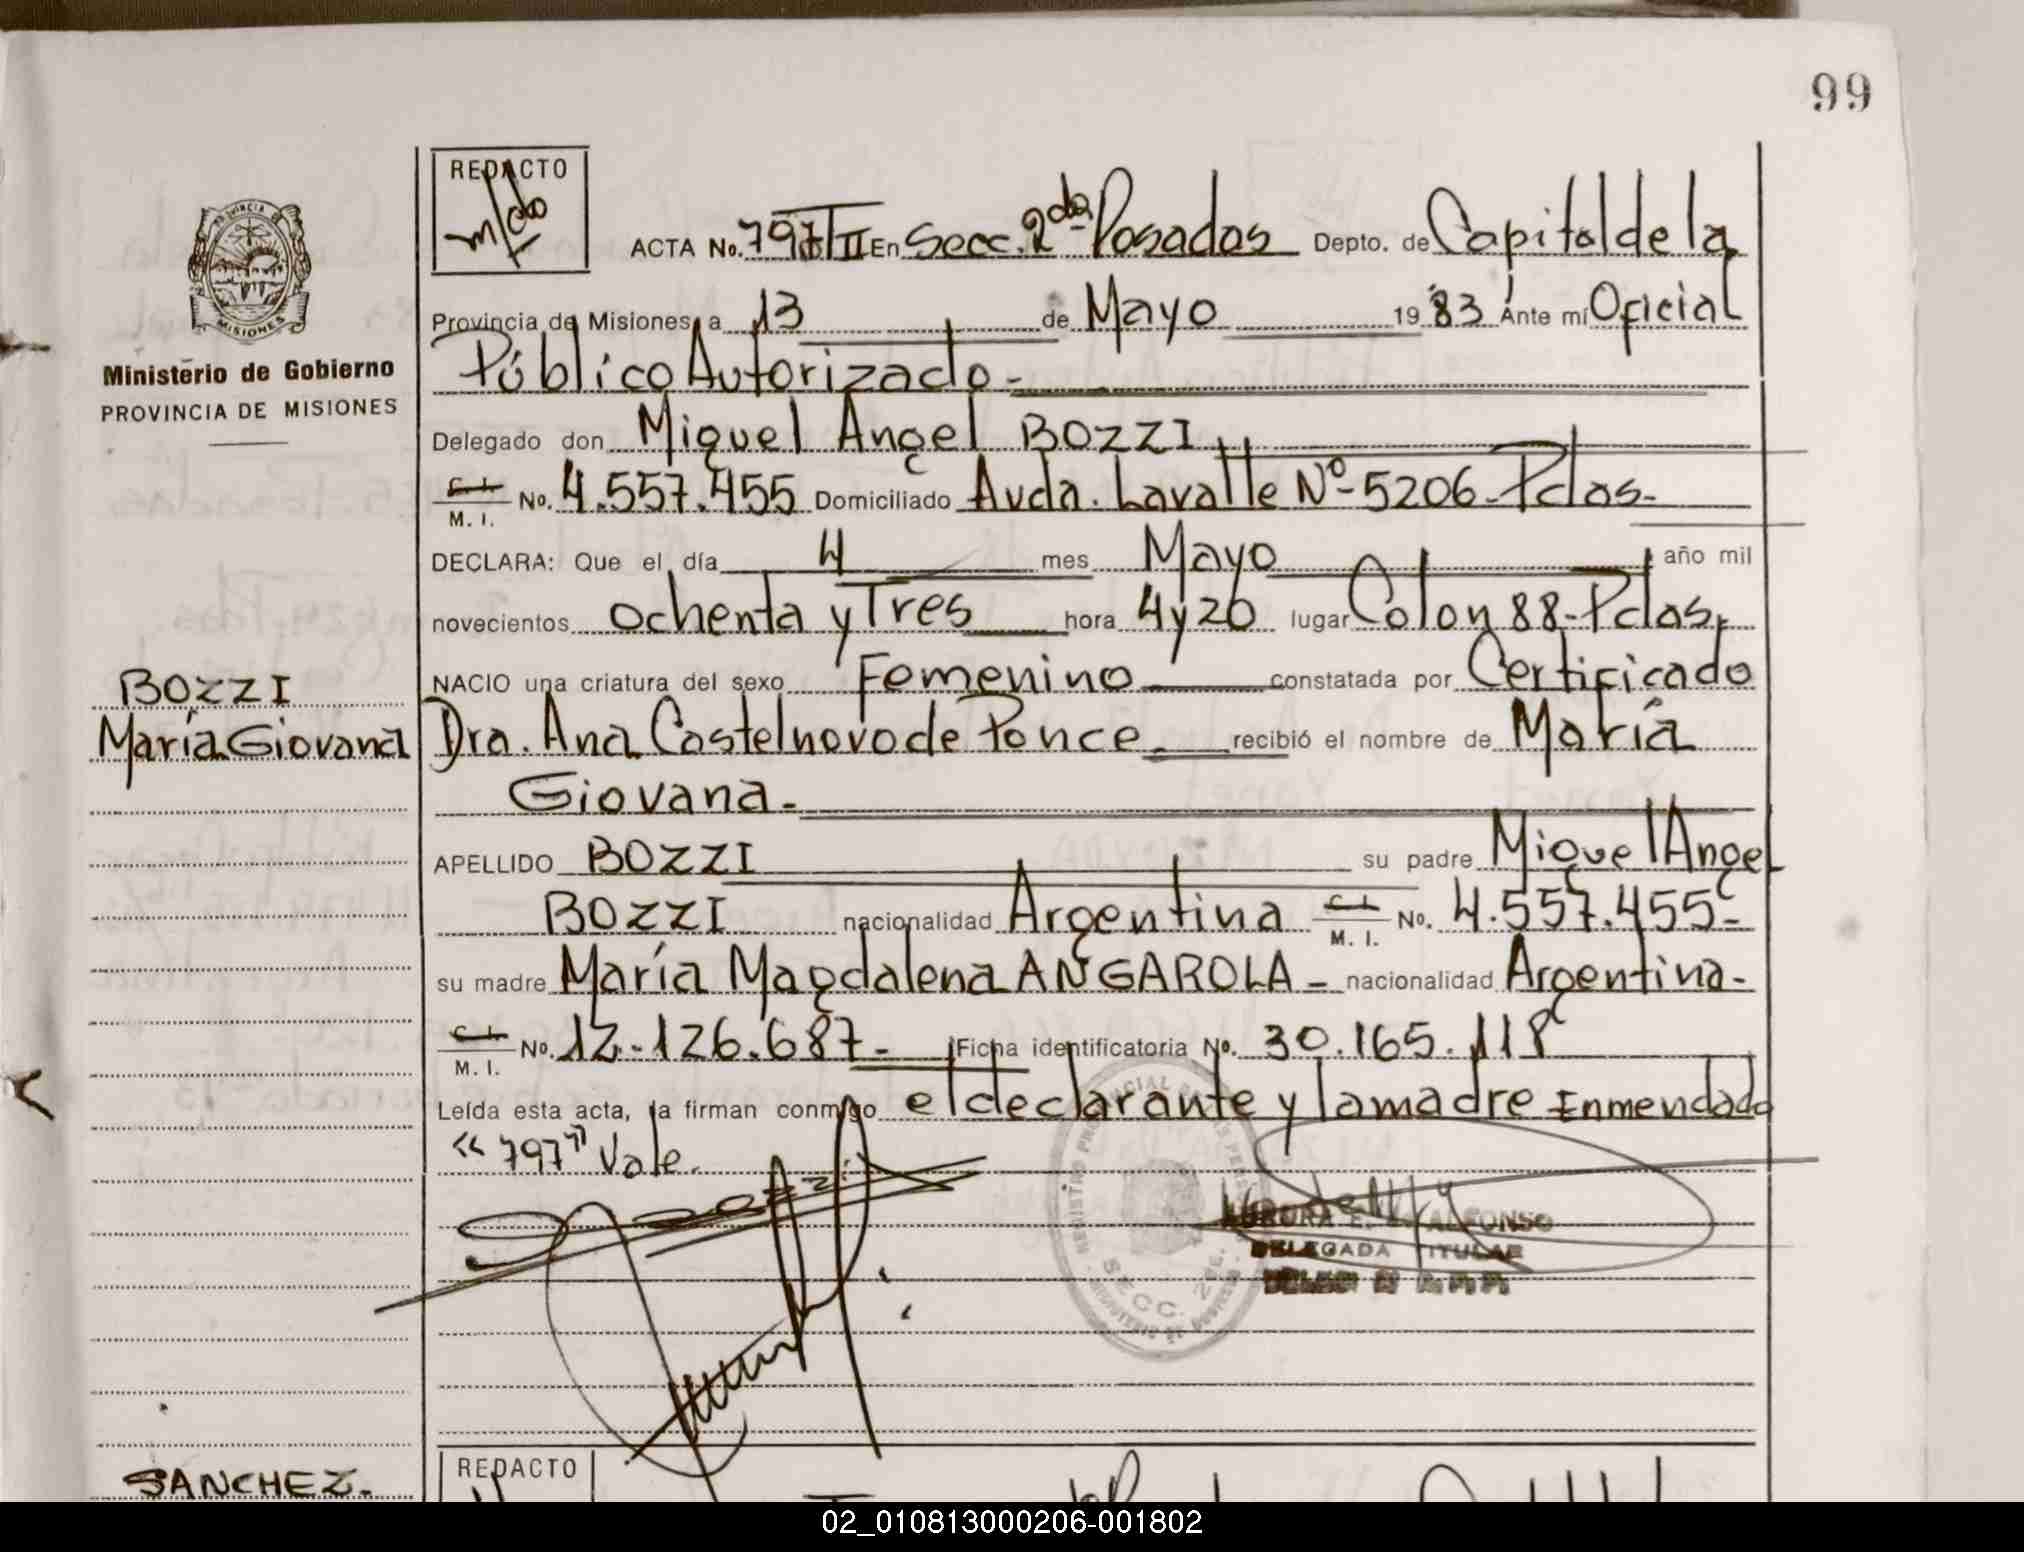 99
REDACTO
ACTA No. 797/II En Secc. 2da Posadas Depto. de Capital de la
Provincia de Misiones, a 13 de Mayo 1983 Ante mí Oficial
Público Autorizado-
Delegado don Miguel Angel BOZZI
C. I. M. I. No. 4.557.455 Domiciliado Avda. Lavalle Nº 5206-Pdas-
DECLARA: Que el día 4 mes Mayo año mil
novecientos ochenta y Tres hora 4 y 20 lugar Colon 88-Pdas,
NACIO una criatura del sexo Femenino constatada por Certificado
Dra. Ana Castelnovo de Ponce recibió el nombre de María
Giovana-
APELLIDO BOZZI su padre Miguel Angel
BOZZI nacionalidad Argentina C. I. M. I. No. 4.557.455-
su madre María Magdalena ANGAROLA - nacionalidad Argentina-
C. I. M. I. No. 12.126.687- Ficha identificatoria No. 30.165.118
Leída esta acta, la firman conmigo el declarante y la madre Enmendado
"797" Vale.
Bozzi
AURORA E. ALFONSO
DELEGADA TITULAR
REGISTRO PROVINCIAL DE LAS PERSONAS
SECC. 2da.
MINISTERIO DE GOBIERNO
PROVINCIA DE
MISIONES
Ministerio de Gobierno
PROVINCIA DE MISIONES
BOZZI
María Giovana
SANCHEZ.
REDACTO
02_010813000206-001802